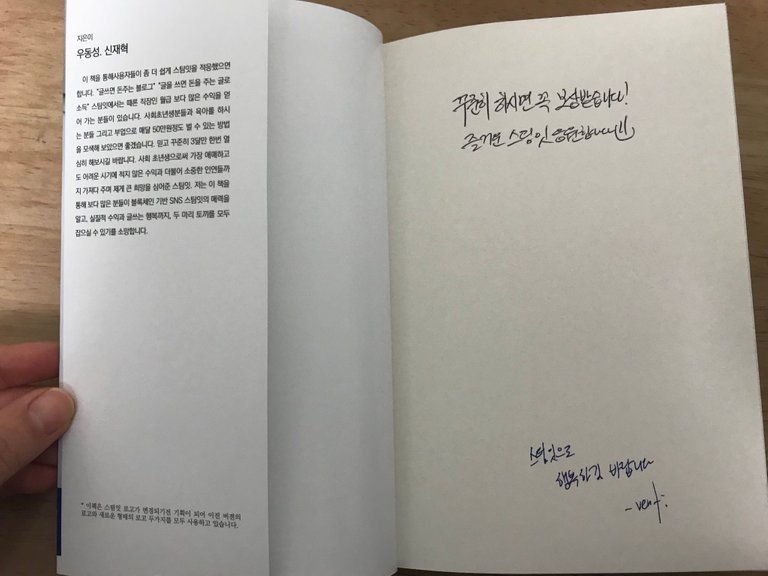 지은이
우동성, 신재혁
이 책을 통해사용자들이 좀 더 쉽게 스팀잇을 적응했으면
합니다. "글쓰면 돈주는 블로그" "글을 쓰면 돈을 주는 글로
소득" 스팀잇에서는 때론 직장인 월급 보다 많은 수익을 얻
어 가는 분들이 있습니다. 사회초년생분들과 육아를 하시
는 분들 그리고 부업으로 매달 50만원정도 벌 수 있는 방법
을 모색해 보았으면 좋겠습니다. 믿고 꾸준히 3달만 한번 열
심히 해보시길 바랍니다. 사회 초년생으로써 가장 애매하고
도 어려운 시기에 적지 않은 수익과 더불어 소중한 인연들까
지 가져다 주며 제게 큰 희망을 심어준 스팀잇. 저는 이 책을
통해 보다 많은 분들이 블록체인 기반 SNS 스팀잇의 매력을
알고, 실질적 수익과 글쓰는 행복까지, 두 마리 토끼를 모두
잡으실 수 있기를 소망합니다.
* 이책은 스팀잇 로고가 변경되기전 기획이 되어 이전 버전의
로고와 새로운 형태의 로고 두가지를 모두 사용하고 있습니다.
꾸준히 하시면 꼭 보상받습니다!
즐거운 스팀잇 응원합니다!!
스팀잇으로
행복하길 바랍니다